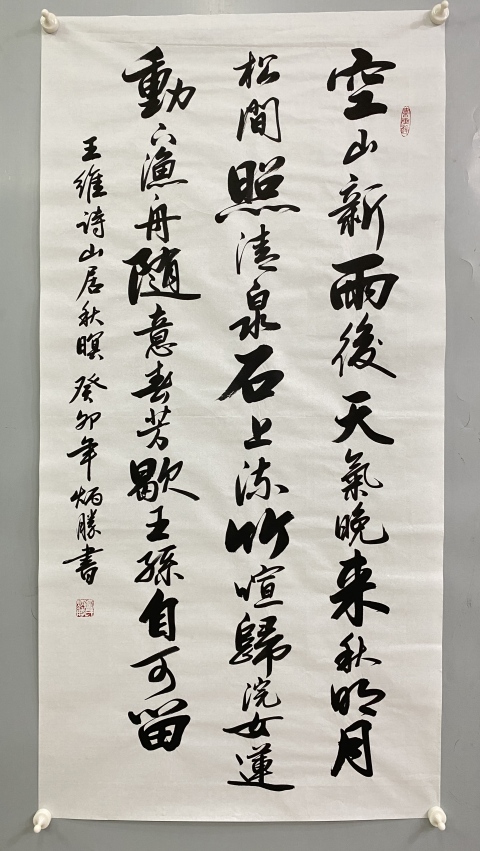 空山新雨後天氣晚来秋明月
松間照清泉石上流竹喧歸浣女蓮
動下漁舟隨意春芳歇王孫自可留
王維詩山居秋暝癸卯年炳勝書